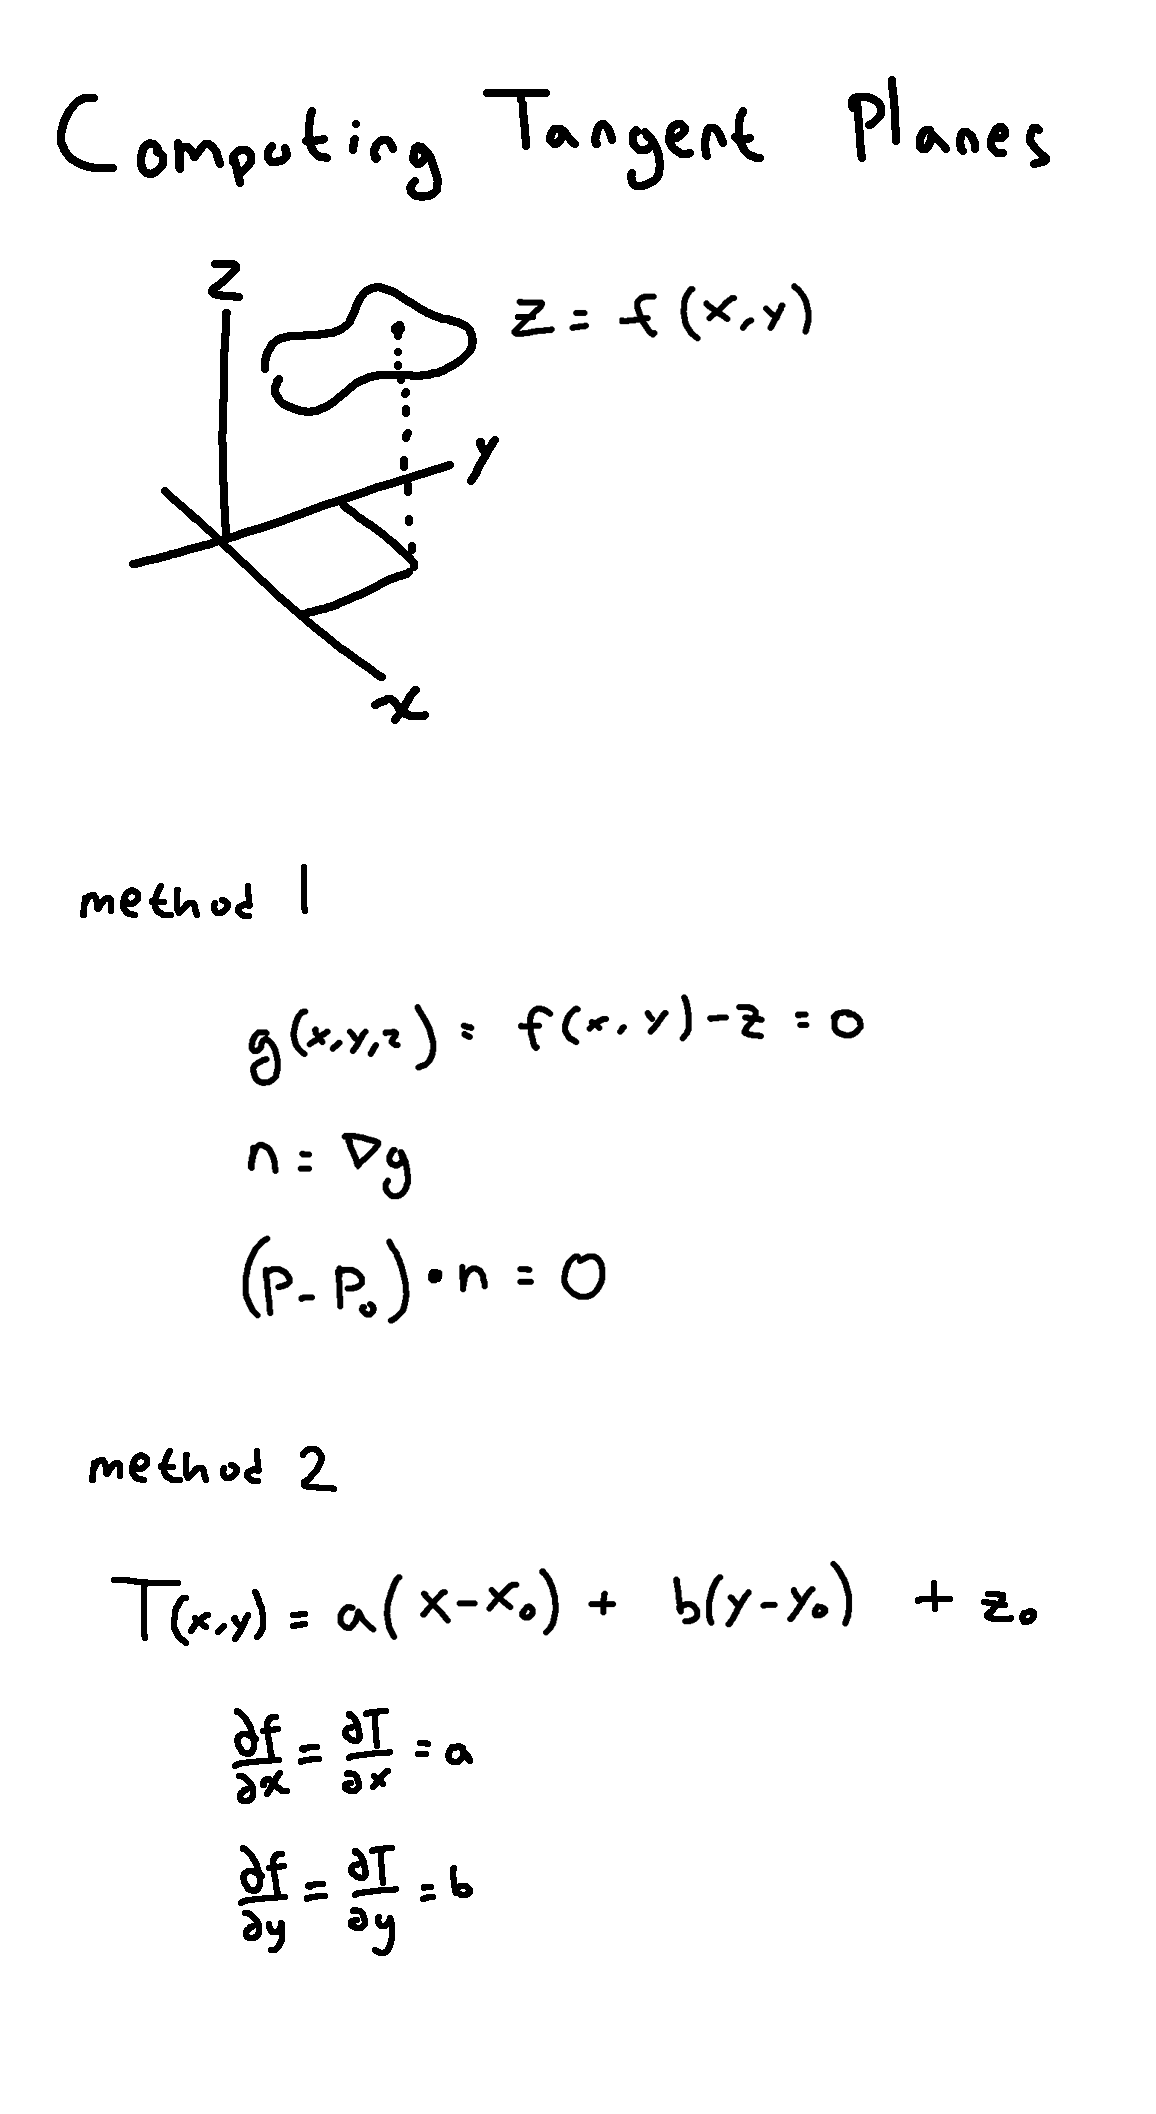 Computing Tangent Planes
z
z = f(x,y)
y
x
method 1
g(x,y,z) = f(x,y)-z = 0
n = ∇g
(P-P₀)•n = 0
method 2
T(x,y) = a(x-x₀) + b(y-y₀) + z₀
∂f/∂x = ∂T/∂x = a
∂f/∂y = ∂T/∂y = b